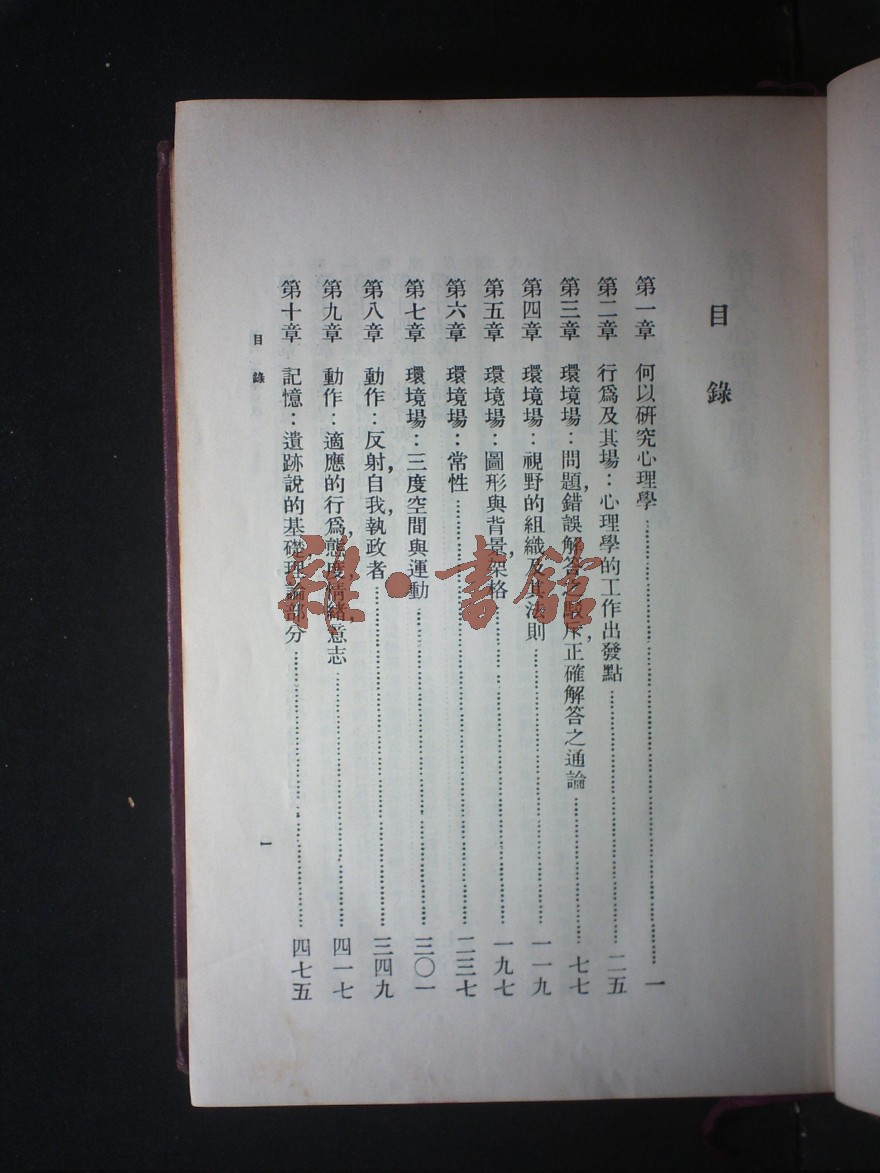 目錄
第一章 何以研究心理學…………一
第二章 行爲及其場：心理學的工作出發點…………二五
第三章 環境場：問題，錯誤解答之駁斥，正確解答之通論…………七七
第四章 環境場：視野的組織及其法則…………一一九
第五章 環境場：圖形與背景，架格…………一九七
第六章 環境場：常性…………二三七
第七章 環境場：三度空間與運動…………三〇一
第八章 動作：反射，自我，執政者…………三四九
第九章 動作：適應的行爲，態度，情緒，意志…………四一七
第十章 記憶：遺跡說的基礎，理論部分…………四七五
目錄
一
雜·書館